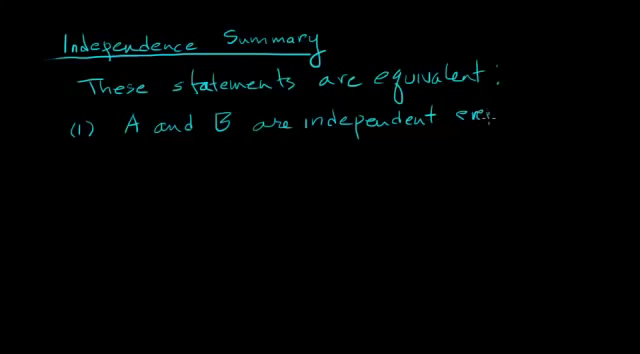 Independence Summary
These statements are equivalent:
(1) A and B are independent